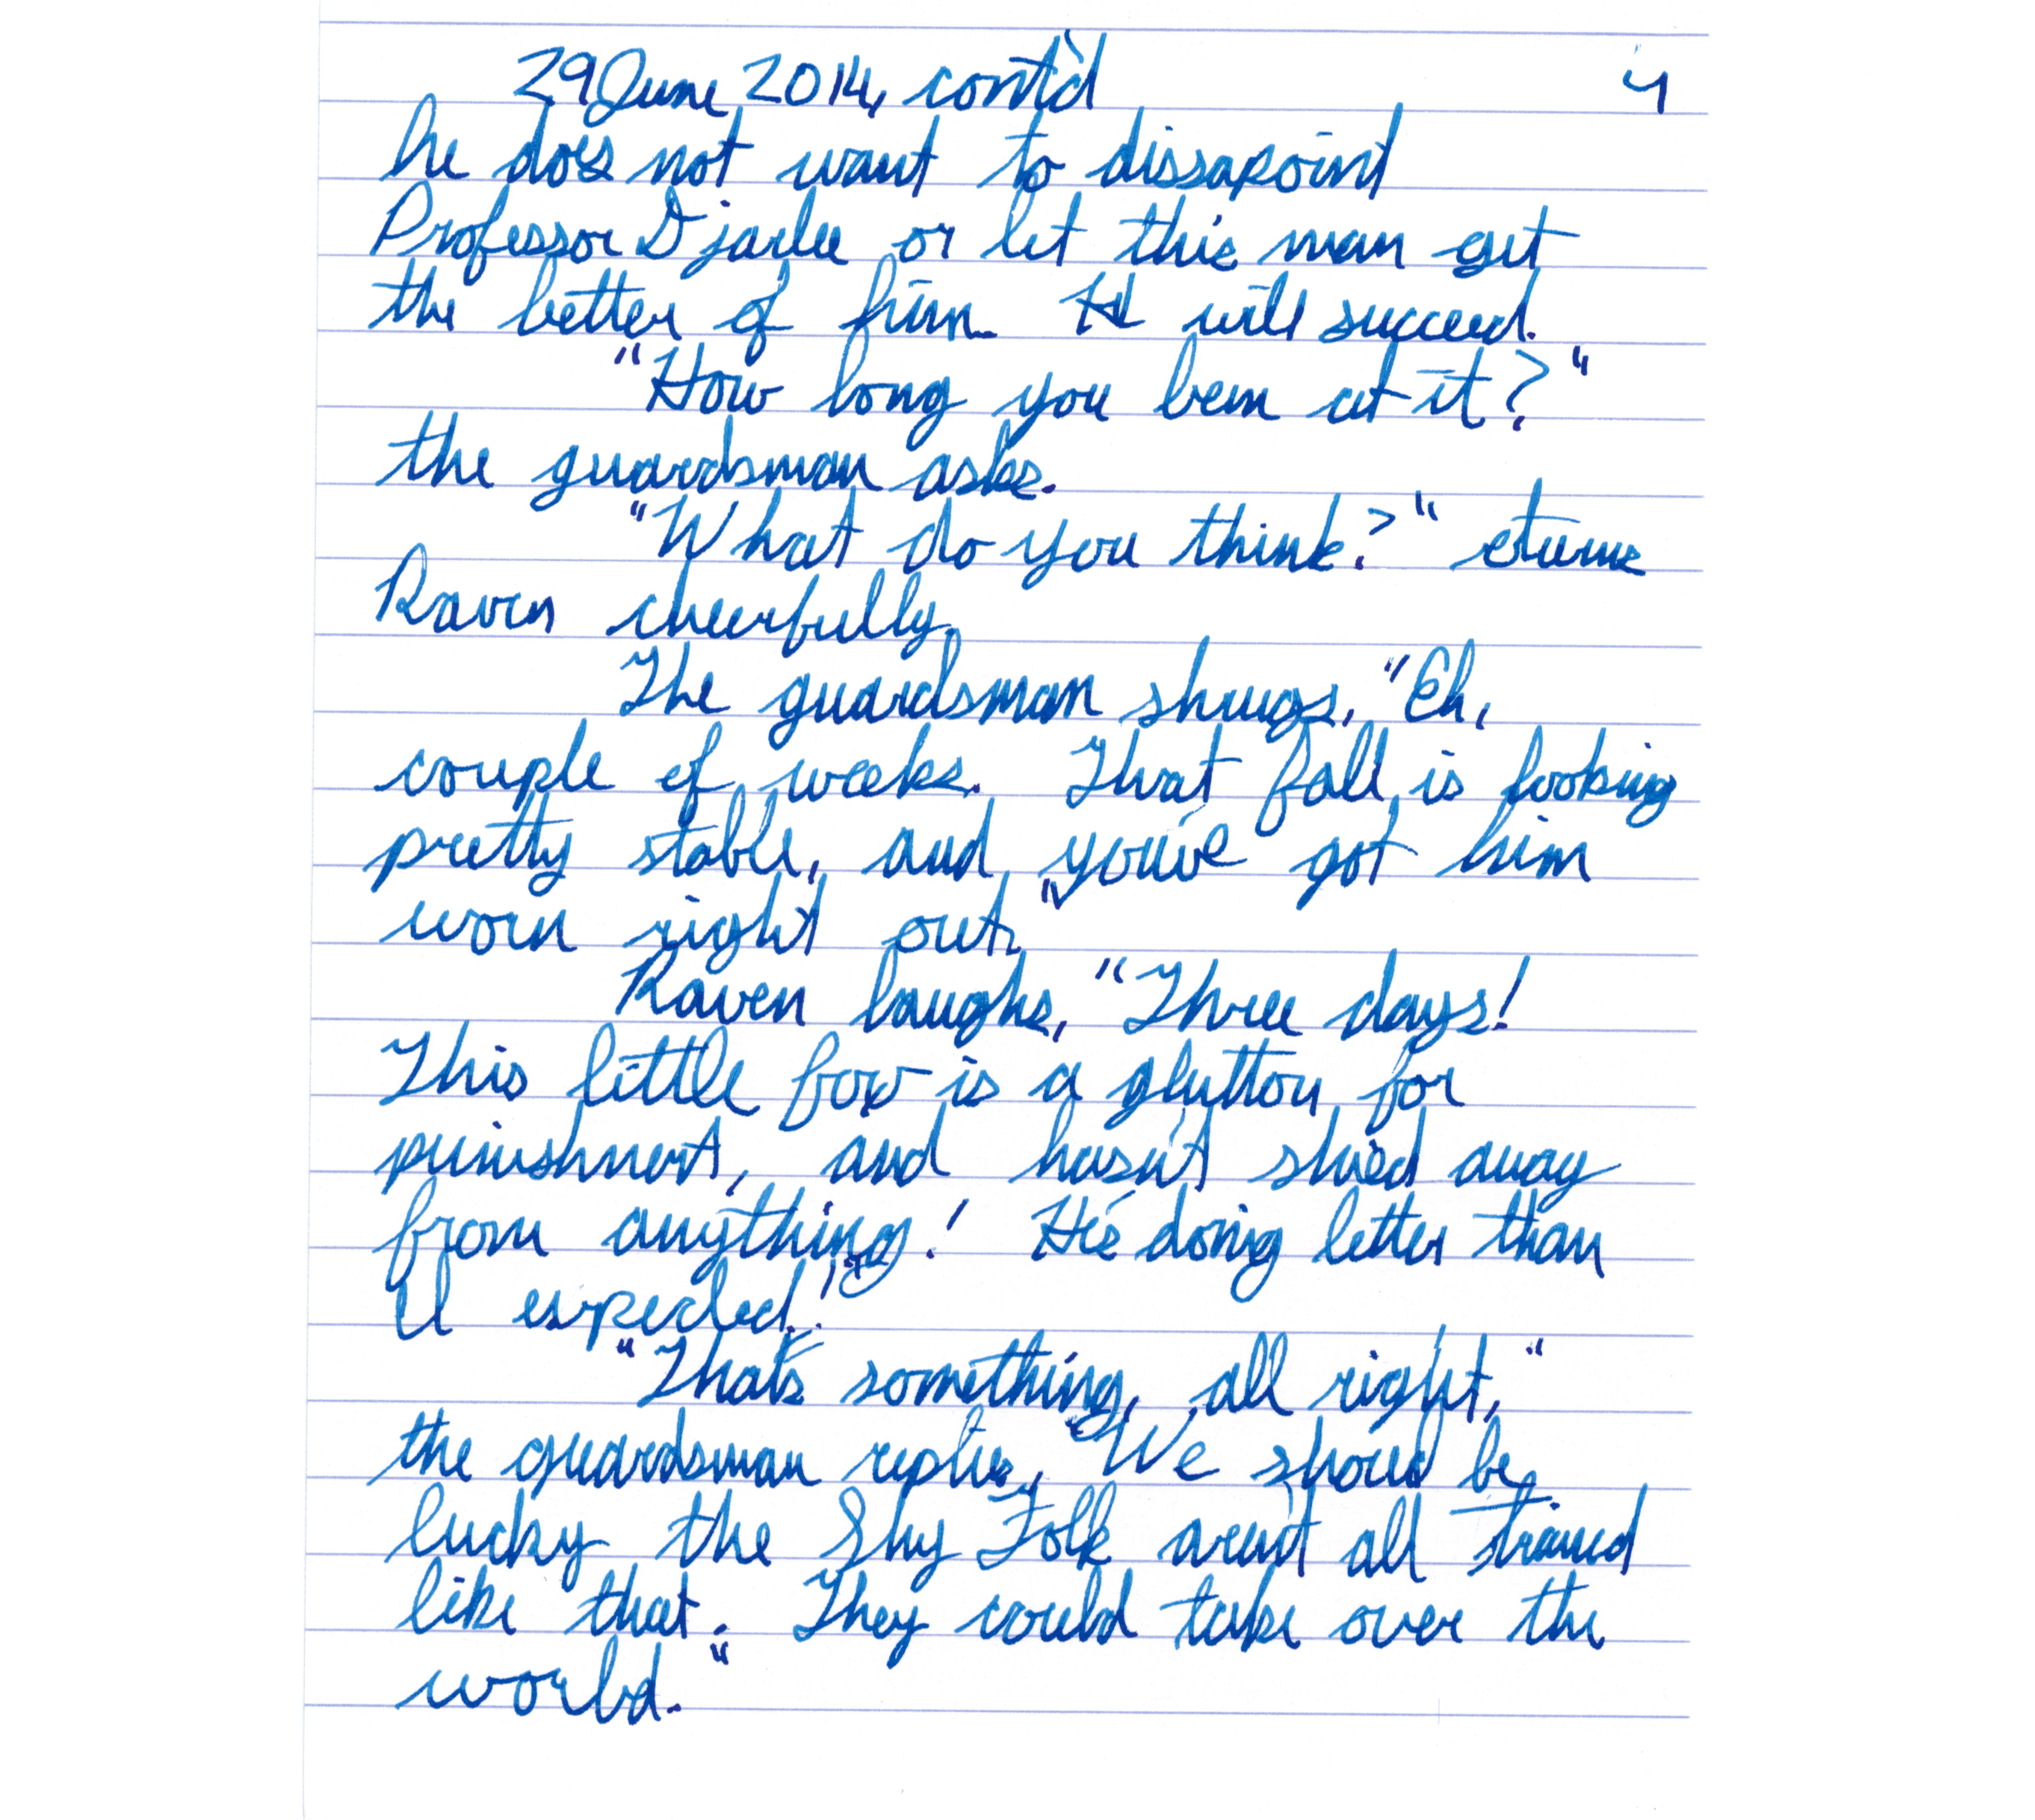 29 June 2014, cont'd 4
he does not want to dissapoint
Professor Djarlee or let this man get
the better of him. He will succeed.
"How long you been at it?"
the guardsman asks.
"What do you think?" eturns
Raven cheerfully.
The guardsman shrugs, "Eh,
couple of weeks. That fall is looking
pretty stable, and you've got him
worn right out."
Raven laughs, "Three days!
This little fox is a glutton for
punishment, and hasn't shied away
from anything! He's doing better than
I expected!"
"That's something, all right,"
the guardsman replies, "We should be
lucky the Shy Folk aren't all trained
like that. They could take over the
world."